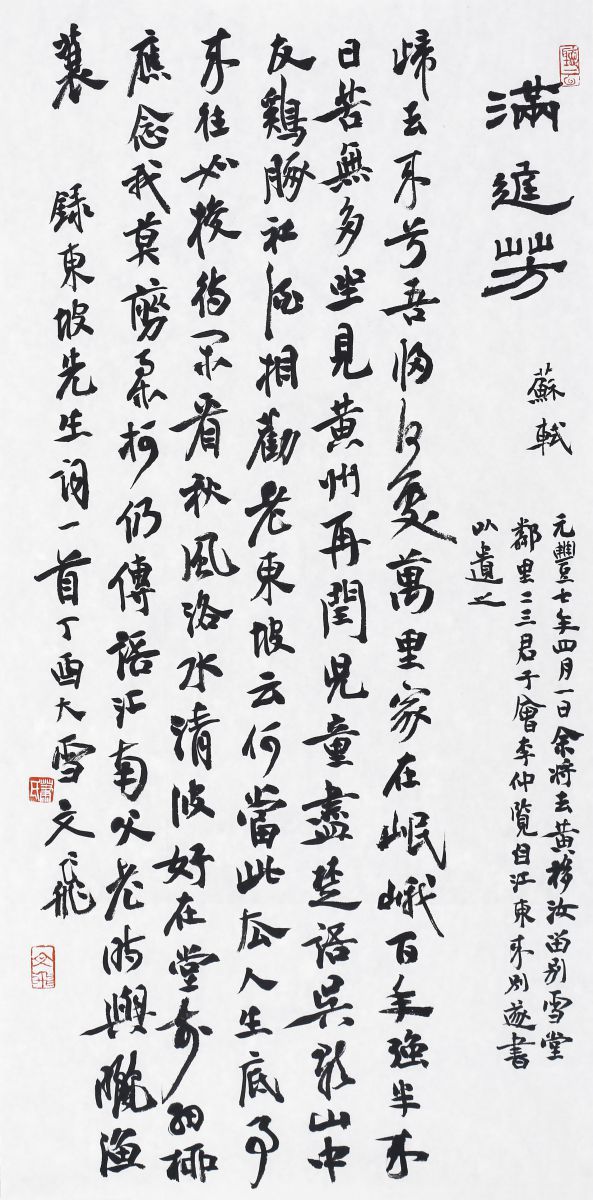 滿庭芳
蘇軾
元豐七年四月一日余將去黃移汝留別雪堂
鄰里二三君子會李仲覽自江東來別遂書
以遺之
歸去來兮吾歸何處萬里家在岷峨百年強半來
日苦無多坐見黃州再閏兒童盡楚語吳歌山中
友鷄豚社酒相勸老東坡云何當此去人生底事
來往如梭待閑看秋風洛水清波好在堂前細柳
應念我莫剪柔柯仍傳語江南父老時與曬漁
蓑
錄東坡先生詞一首丁酉大雪文飛
文飛